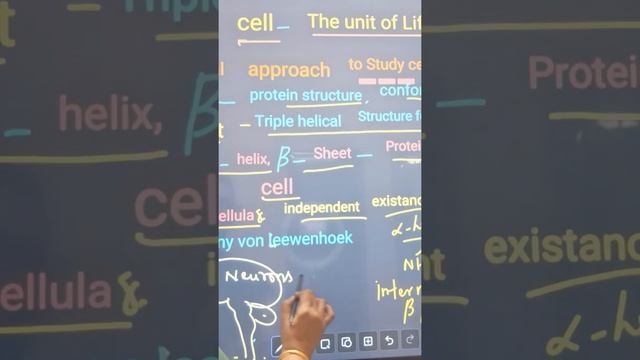 cell - The unit of Lif
l approach to Study ce
- protein structure, confor
- Triple helical Structure f
- helix, β - Sheet - Protei
cell
ellula & independent existanc
ny von leewenhoek
α-h
Neurons
Inter
β